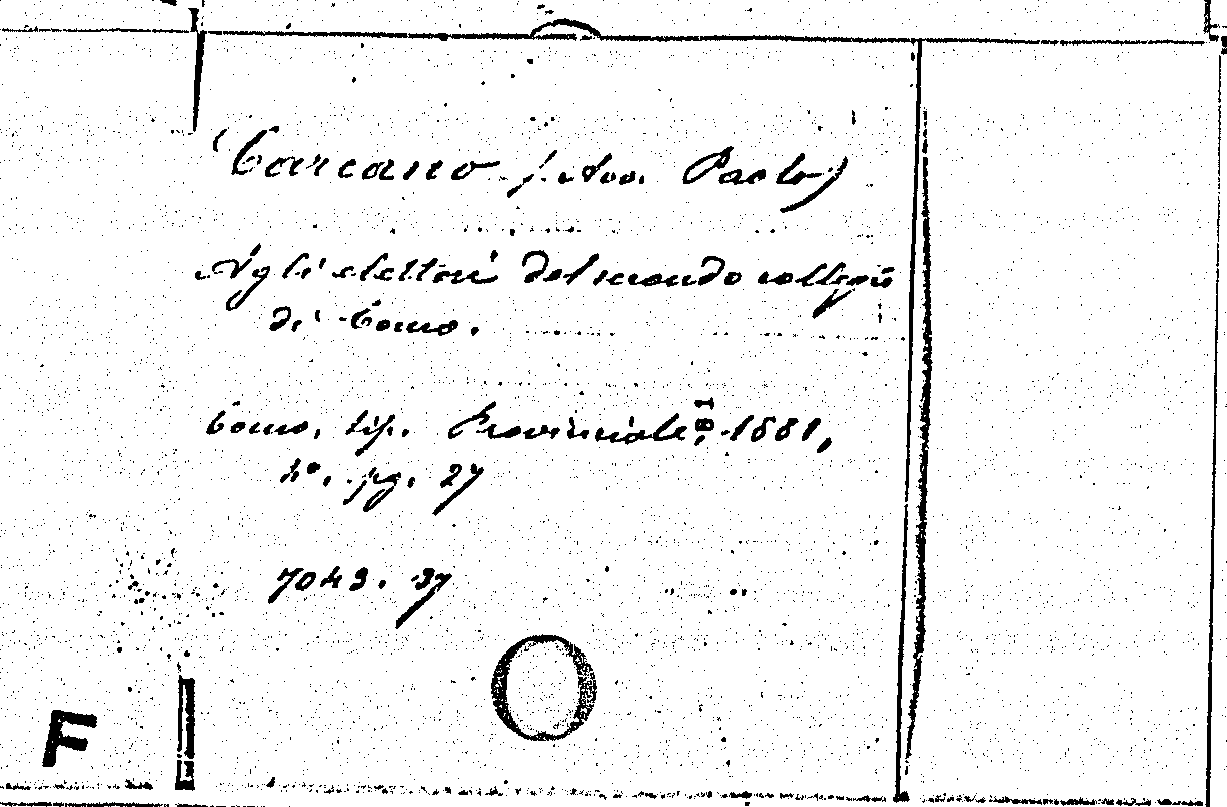 Carcano (Avv. Paolo)
Agli elettori del secondo collegio
di Como.
Como, tip. Provinciale, 1881,
4°. pg. 27
7049. 37
F